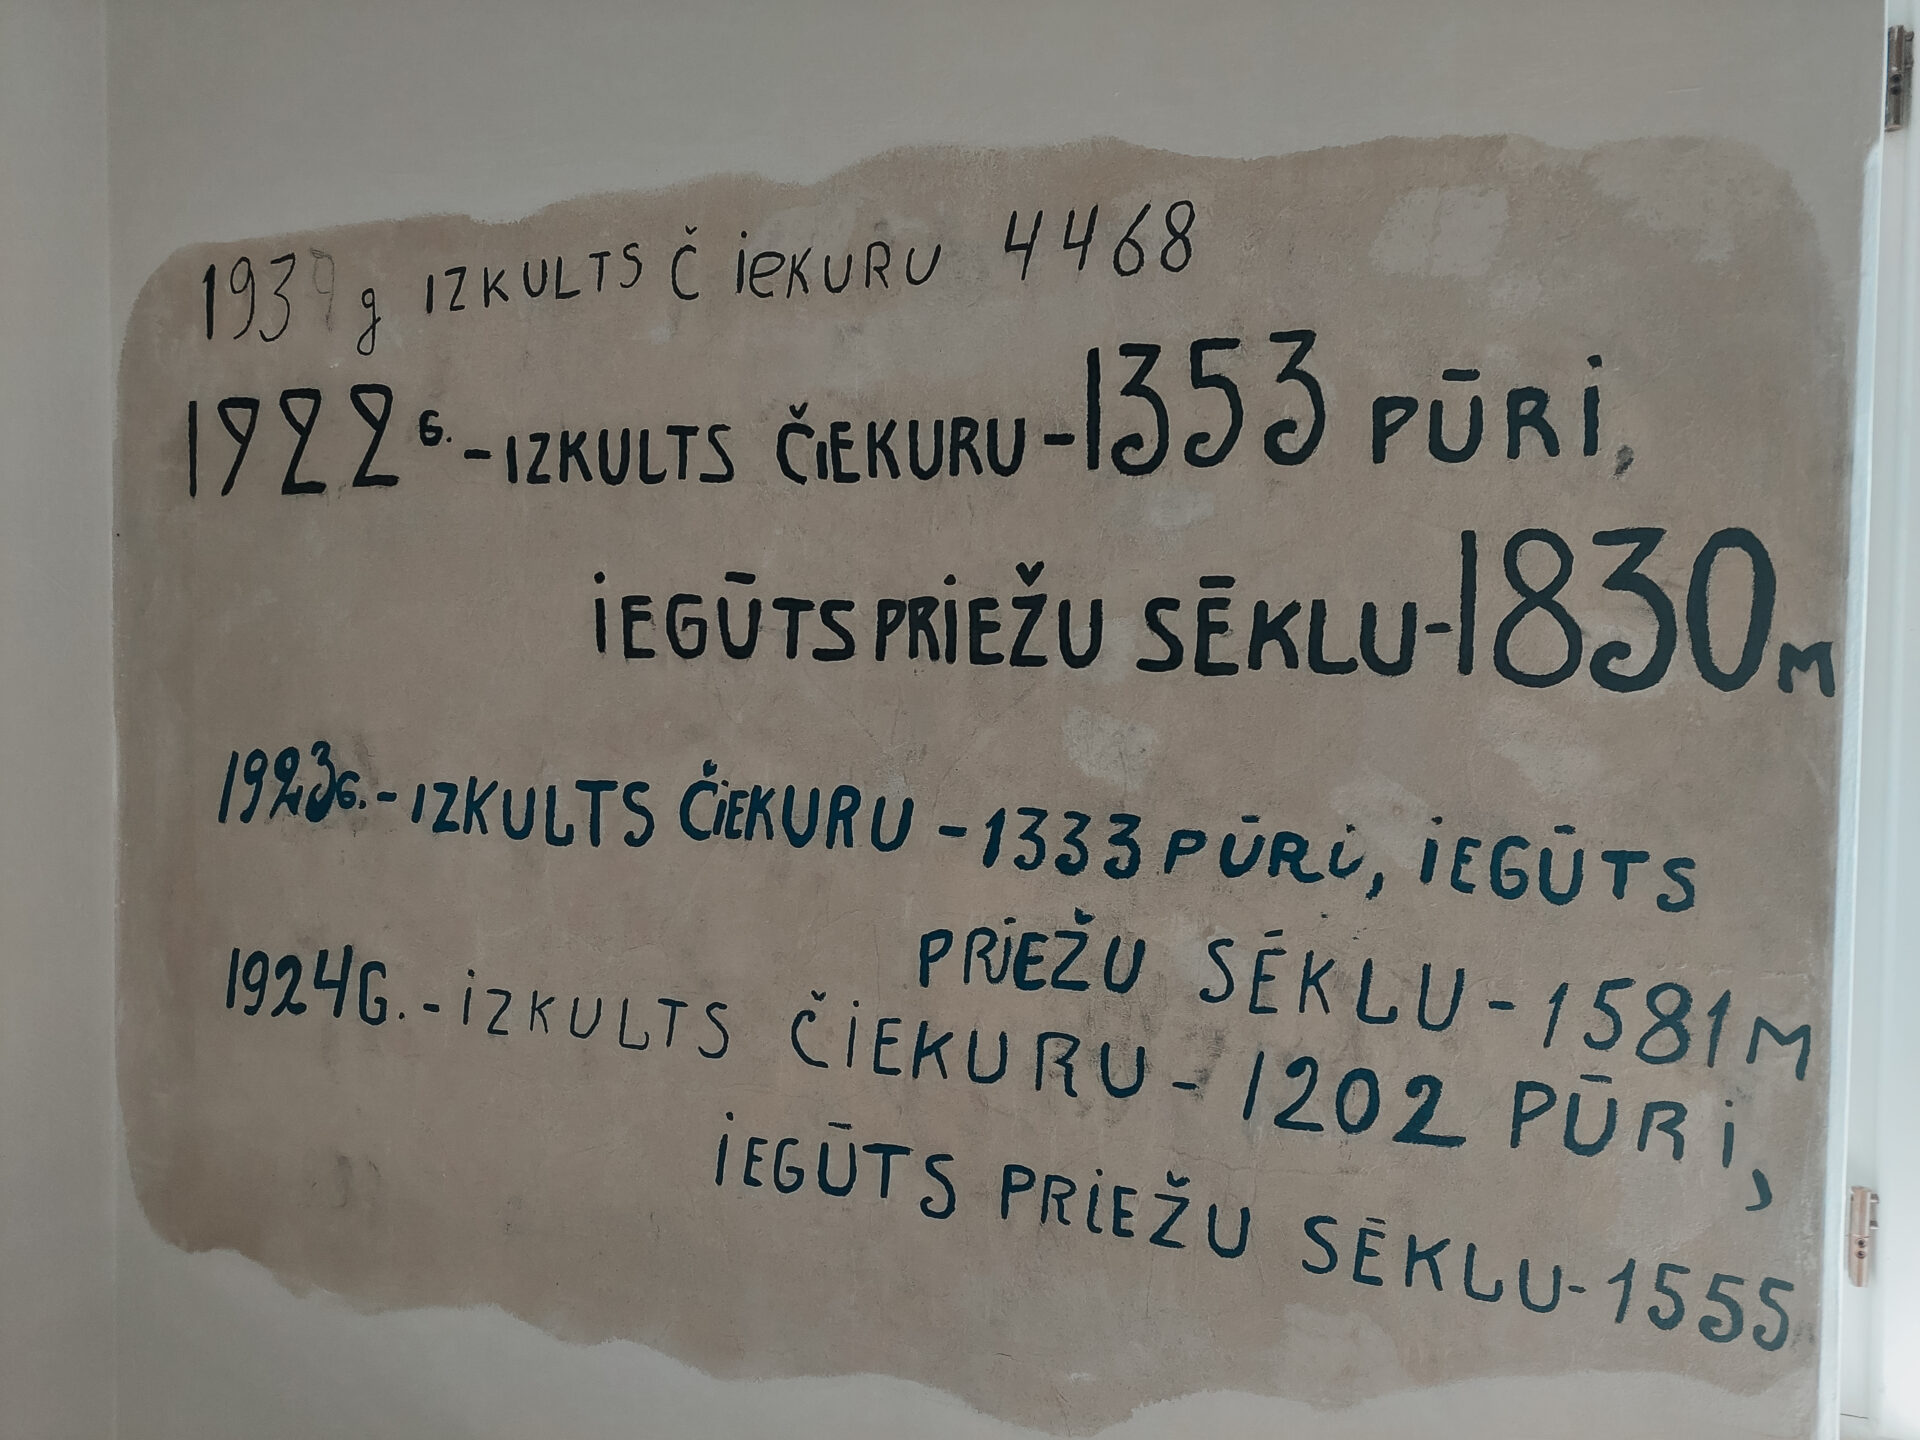 1939 g IZKULTS ČIEKURU 4468
1922 G. - IZKULTS ČIEKURU - 1353 PŪRI,
IEGŪTS PRIEŽU SĒKLU - 1830 M
1923 G. - IZKULTS ČIEKURU - 1333 PŪRI, IEGŪTS
PRIEŽU SĒKLU - 1581 M
1924 G. - IZKULTS ČIEKURU - 1202 PŪRI,
IEGŪTS PRIEŽU SĒKLU - 1555